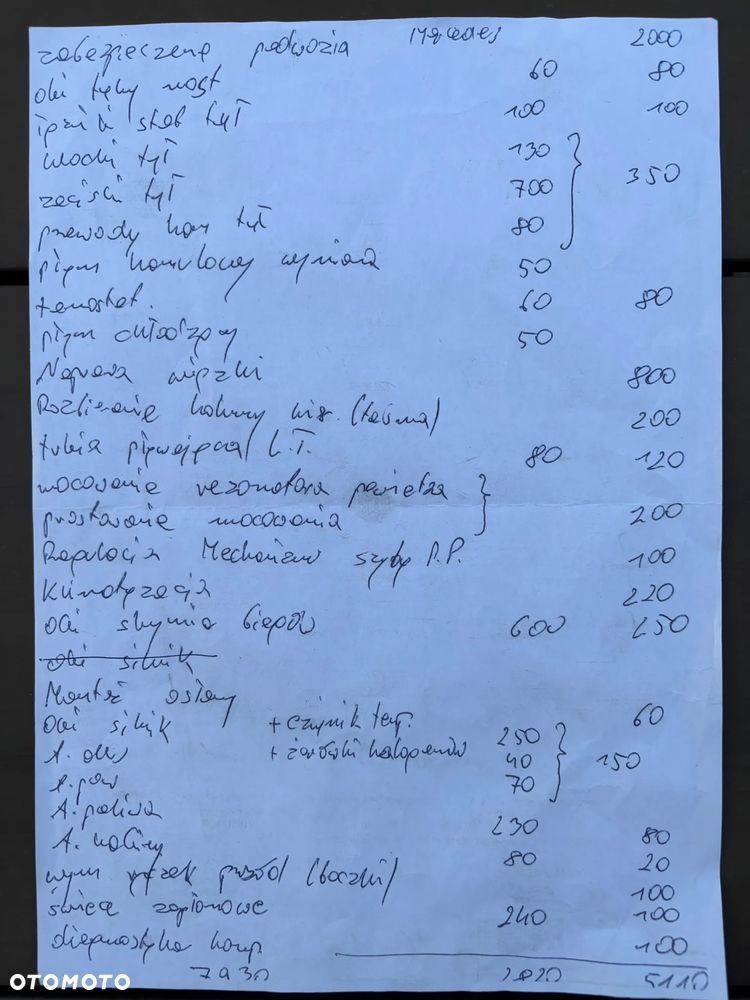 zabezpieczenie podwozia Mercedes 2000
olej tylny most 60 80
łączniki stab tył 100 100
klocki tył 130
zaciski tył 700 350
przewody ham tył 80
płyn hamulcowy wymiana 50
termostat. 60 80
płyn chłodzący 50
Naprawa wiązki 800
Rozbieranie kolumny kier. (taśma) 200
tuleja pływająca L.T. 80 120
mocowanie rezonatora powietrza
prostowanie mocowania 200
Regulacja Mechanizm szyby P.P. 100
Klimatyzacja 220
olej skrynia biegów 600 250
olej silnik
Montaż osłony 60
olej silnik + czujnik temp. 250
f. olej + żarówki halogenów 40 150
f. pow 70
f. paliwa 230 80
f. kabiny 80 20
wym poduszek przód (boczki) 100
świece zapłonowe 240 100
diagnostyka komp 100
7930 2820 5110
OTOMOTO